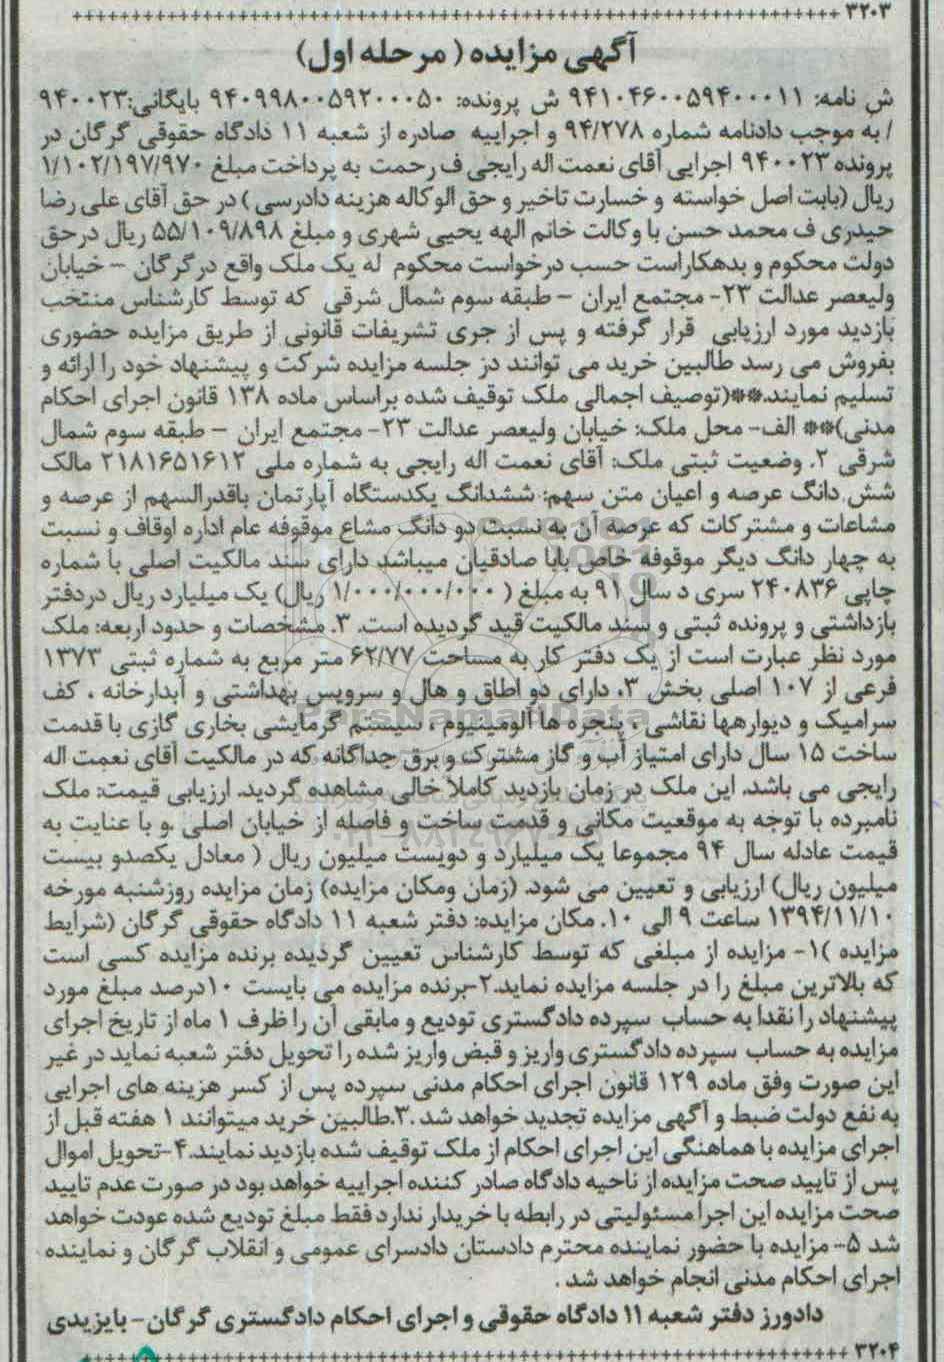 ۳۲۰۳
آگهی مزایده ( مرحله اول)
ش نامه: ۹۴۱۰۴۶۰۰۵۹۴۰۰۰۱۱ ش پرونده: ۹۴۰۹۹۸۰۰۵۹۲۰۰۰۵۰ بایگانی:۹۴۰۰۲۳
/ به موجب دادنامه شماره ۹۴/۲۷۸ و اجراییه صادره از شعبه ۱۱ دادگاه حقوقی گرگان در
پرونده ۹۴۰۰۲۳ اجرایی آقای نعمت اله رایجی ف رحمت به پرداخت مبلغ ۱/۱۰۲/۱۹۷/۹۷۰
ریال (بابت اصل خواسته و خسارت تاخیر و حق الوکاله هزینه دادرسی ) در حق آقای علی رضا
حیدری ف محمد حسن با وکالت خانم الهه یحیی شهری و مبلغ ۵۵/۱۰۹/۸۹۸ ریال درحق
دولت محکوم و بدهکار است حسب درخواست محکوم له یک ملک واقع در گرگان - خیابان
ولیعصر عدالت ۲۳- مجتمع ایران - طبقه سوم شمال شرقی که توسط کارشناس منتخب
بازدید مورد ارزیابی قرار گرفته و پس از جری تشریفات قانونی از طریق مزایده حضوری
بفروش می رسد طالبین خرید می توانند در جلسه مزایده شرکت و پیشنهاد خود را ارائه و
تسلیم نمایند.**(توصیف اجمالی ملک توقیف شده براساس ماده ۱۳۸ قانون اجرای احکام
مدنی)** الف- محل ملک: خیابان ولیعصر عدالت ۲۳- مجتمع ایران - طبقه سوم شمال
شرقی ۲. وضعیت ثبتی ملک: آقای نعمت اله رایجی به شماره ملی ۲۱۸۱۶۵۱۶۱۲ مالک
شش دانگ عرصه و اعیان متن سهم: ششدانگ یکدستگاه آپارتمان باقدرالسهم از عرصه و
مشاعات و مشترکات که عرصه آن به نسبت دو دانگ مشاع موقوفه عام اداره اوقاف و نسبت
به چهار دانگ دیگر موقوفه خاص بابا صادقیان میباشد دارای سند مالکیت اصلی با شماره
چاپی ۲۴۰۸۳۶ سری د سال ۹۱ به مبلغ ( ۱/۰۰۰/۰۰۰/۰۰۰ ریال) یک میلیارد ریال دردفتر
بازداشتی و پرونده ثبتی و سند مالکیت قید گردیده است. ۳. مشخصات و حدود اربعه: ملک
مورد نظر عبارت است از یک دفتر کار به مساحت ۶۲/۷۷ متر مربع به شماره ثبتی ۱۳۷۳
فرعی از ۱۰۷ اصلی بخش ۳. دارای دو اطاق و هال و سرویس بهداشتی و آبدارخانه ، کف
سرامیک و دیوارهها نقاشی ، پنجره ها آلومینیوم ، سیستم گرمایشی بخاری گازی با قدمت
ساخت ۱۵ سال دارای امتیاز آب و گاز مشترک و برق جداگانه که در مالکیت آقای نعمت اله
رایجی می باشد. این ملک در زمان بازدید کاملا خالی مشاهده گردید. ارزیابی قیمت: ملک
نامبرده با توجه به موقعیت مکانی و قدمت ساخت و فاصله از خیابان اصلی .و با عنایت به
قیمت عادله سال ۹۴ مجموعا یک میلیارد و دویست میلیون ریال ( معادل یکصدو بیست
میلیون ریال) ارزیابی و تعیین می شود. (زمان ومکان مزایده) زمان مزایده روزشنبه مورخه
۱۳۹۴/۱۱/۱۰ ساعت ۹ الی ۱۰. مکان مزایده: دفتر شعبه ۱۱ دادگاه حقوقی گرگان (شرایط
مزایده )۱- مزایده از مبلغی که توسط کارشناس تعیین گردیده برنده مزایده کسی است
که بالاترین مبلغ را در جلسه مزایده نماید.۲-برنده مزایده می بایست ۱۰درصد مبلغ مورد
پیشنهاد را نقدا به حساب سپرده دادگستری تودیع و مابقی آن را ظرف ۱ ماه از تاریخ اجرای
مزایده به حساب سپرده دادگستری واریز و قبض واریز شده را تحویل دفتر شعبه نماید در غیر
این صورت وفق ماده ۱۲۹ قانون اجرای احکام مدنی سپرده پس از کسر هزینه های اجرایی
به نفع دولت ضبط و آگهی مزایده تجدید خواهد شد .۳.طالبین خرید میتوانند ۱ هفته قبل از
اجرای مزایده با هماهنگی این اجرای احکام از ملک توقیف شده بازدید نمایند.۴-تحویل اموال
پس از تایید صحت مزایده از ناحیه دادگاه صادر کننده اجراییه خواهد بود در صورت عدم تایید
صحت مزایده این اجرا مسئولیتی در رابطه با خریدار ندارد فقط مبلغ تودیع شده عودت خواهد
شد ۵- مزایده با حضور نماینده محترم دادستان دادسرای عمومی و انقلاب گرگان و نماینده
اجرای احکام مدنی انجام خواهد شد .
دادورز دفتر شعبه ۱۱ دادگاه حقوقی و اجرای احکام دادگستری گرگان- بایزیدی
۳۲۰۴
ParsNamadData